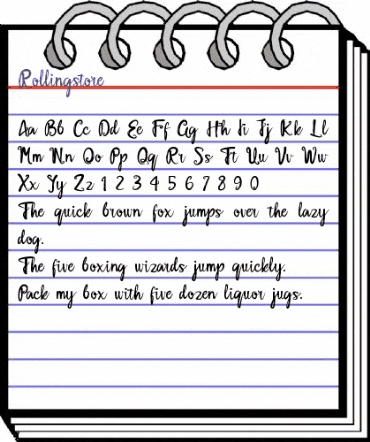 Rollingstore
Aa Bb Cc Dd Ee Ff Gg Hh Ii Jj Kk Ll
Mm Nn Oo Pp Qq Rr Ss Tt Uu Vv Ww
Xx Yy Zz 1 2 3 4 5 6 7 8 9 0
The quick brown fox jumps over the lazy
dog.
The five boxing wizards jump quickly.
Pack my box with five dozen liquor jugs.